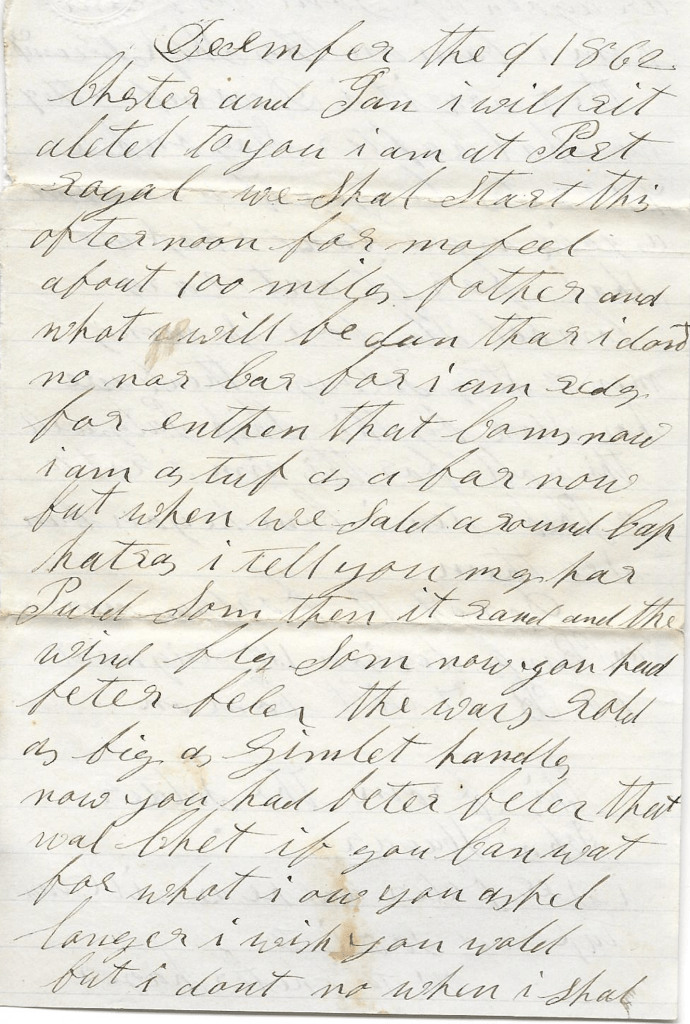 Decmber the 9 1862
Chester and Jan i will rit
a letel to you i am at Port
royal we shal start this
afternoon for mobeel
about 100 miles father and
what will be dun thar i dont
no nor car for i am redy
for enthen that coms now
i am as tuf as a bar now
but when we sald around Cap
hatras i tell you my har
Puld Som then it rand and the
wind bly Som now you had
beter belev the wavs rold
as big as Gimlet handls
now you had beter belev that
wal Chet if you can wat
for what i ow you a spel
longer i wish you wold
but i dont no when i shal